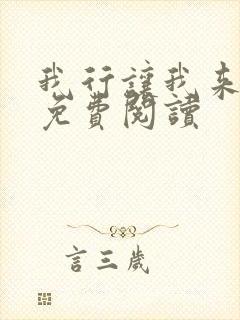 我行讓我來
免費閱讀
言三歲